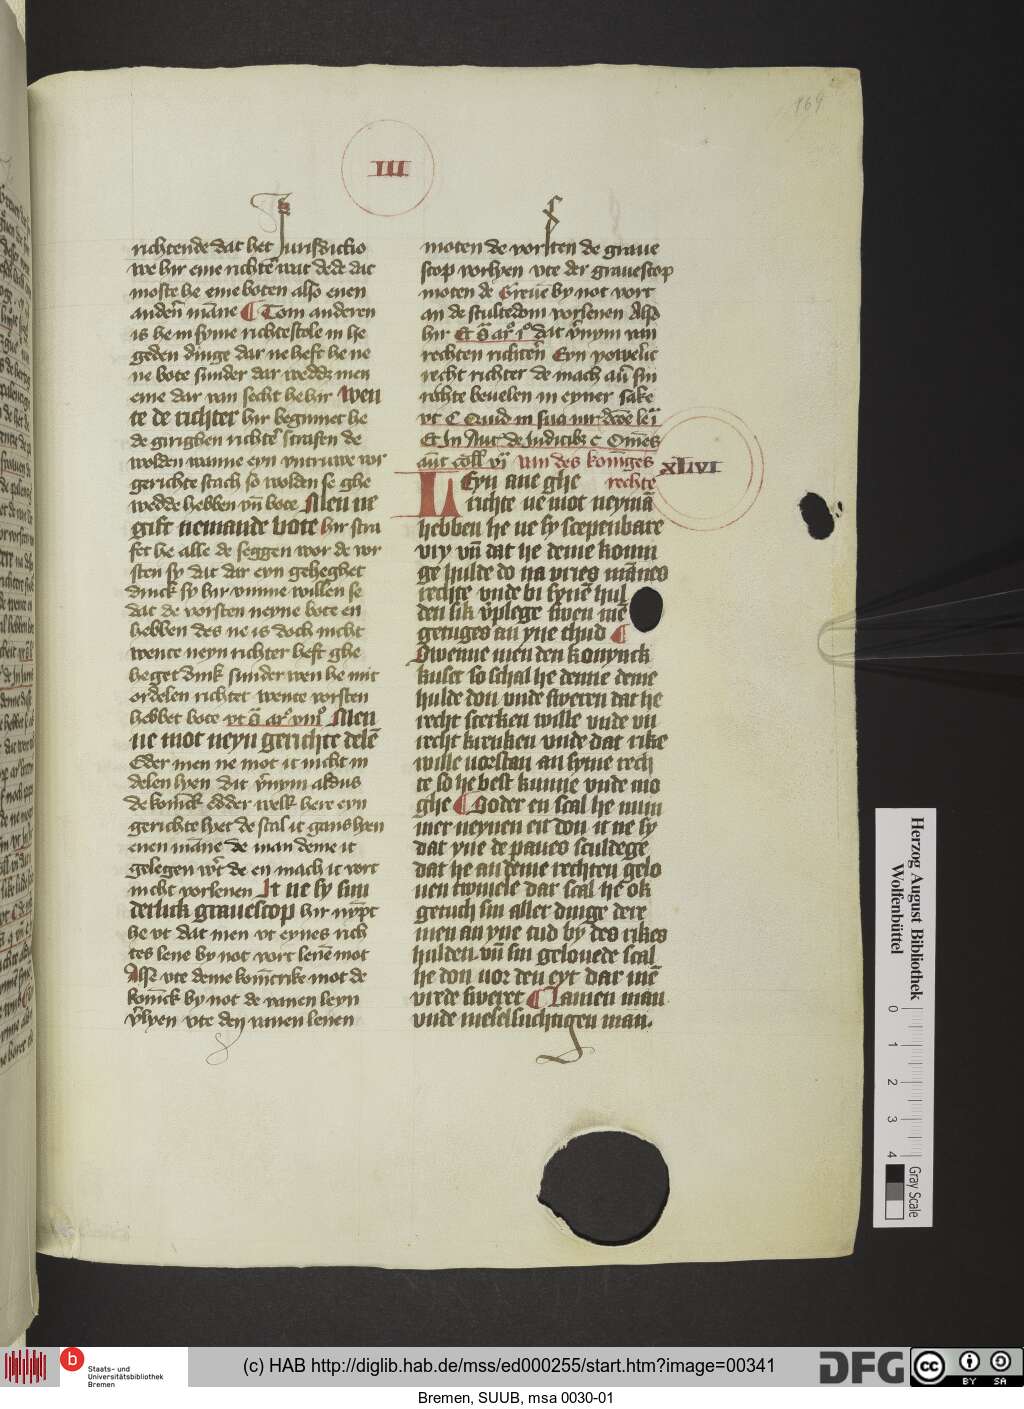 164
III
richtende dat het Jurisdictio
we hir eine richtē wat dede dat
moste he eme boten also enen
andern̄ māne ¶ Tom anderen
is he in syme richtestole in he
geden dinge dar ne heft he ne
ne bote sunder dar weddʒ men
eme dar van secht he hir Wen
te de richter hir begynnet he
de girighen richtē strafen de
wolden wanne eyn vntruwe wir
gerichte stach so wolden se ghe
wedde hebben vn̄ bote Men ne
gift nemande bote hir stra
fet he alle de seggen wor de vor
sten sy dat dar eyn geheghet
dinck sy hir vmme willen se
dat de vorsten neyne bote en
hebben des ne is doch nicht
wente neyn richter heft ghe
heget dink sunder wen he mit
ordelen richtet wente vorsten
hebbet bote vt Men
ne mot neyn gerichte delē
Eder men ne mot it nicht in
delen lyen dit v̄nym aldus
de konīck edder welk here eyn
gerichte lyet de scal it gans lyen
enen māne de man deme it
gelegen wr̄t de en mach it vort
nicht vorlenen It ne sy sun
derlick grauescop hir nyp̄t
he vt dat men vt eynes rich
tes lene by not vort lenē mot
Alse vte deme konīcrike mot de
konīck by not de vanen leyn
v̄lyen vte den vanen lenen
moten de vorsten de graue
scop vorlyen vte der grauescop
moten de Greuē by not vort
an de scultedom vorlenen Also
hir dat v̄nym van
rechten richtern̄ Eyn yowelic
recht richter de mach an̄ sin
richte beuelen in eyner sake
van des koniges
rechte
XLIVI
LEyn aue ghe
richte ne mot neymā
hebben he ne sy scepenbare
vry vn̄ dat he deme konin
ge hulde do na vries mānes
rechte vnde bi synē hul
den sik v̄plege swen mē
getuges an yne thud ¶
Swenne men den konynck
kuset so schal he deme deme
hulde don vnde sweren dat he
recht sterken wille vnde vn
recht krenken vnde dat rike
wille vorstan an syme rech
te so he best kunne vnde mo
ghe ¶ Soder en scal he nim
mer neynen eit don it ne sy
dat yne de paues sculdege
dat he an deme rechten gelo
uen twiuele dar scal he ok
getuch sin aller dinge dere
men an yne tud by des rikes
hulden vn̄ sin gelouede scal
he don vor den eyt dar mē
virde sweret ¶ Lamen man
vnde meselsuchtigen man.
Herzog August Bibliothek
Wolfenbüttel
0 1 2 3 4
Gray Scale
b
Staats- und
Universitätsbibliothek
Bremen
(c) HAB http://diglib.hab.de/mss/ed000255/start.htm?image=00341
DFG
cc BY SA
Bremen, SUUB, msa 0030-01